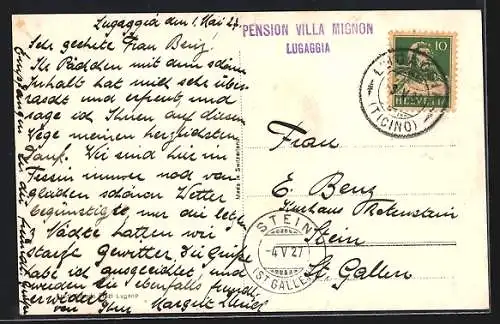 Lugaggia den 1. Mai 27.
Sehr geehrte Frau Benz!
Ihr Päckchen mit dem schönen
Inhalt hat mich sehr über-
rascht und erfreut, und
sage ich Ihnen auf diesem
Wege meinen herzlichsten
Dank. Wir sind hier im
Tessin immer noch vom
gleichen schönen Wetter
begünstigt, nur die letzten
Nächte hatten wir
starke Gewitter. Die Grüsse
habe ich ausgerichtet und
werden sie ebenfalls freundl.
erwidert.
von Ihrer Margrit
PENSION VILLA MIGNON
LUGAGGIA
10
HELVETIA
(TICINO)
Made in Switzerland
Frau
E. Benz
Kurhaus Rotenstein
Stein
St. Gallen
STEIN
-4 V 27
(ST GALLEN)